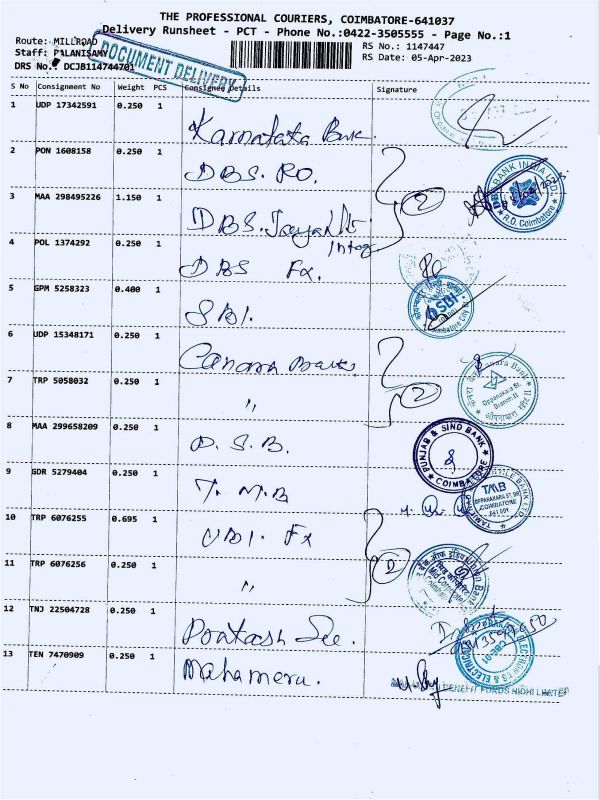 THE PROFESSIONAL COURIERS, COIMBATORE-641037
Delivery Runsheet - PCT - Phone No.:0422-3505555 - Page No.:1
Route: MILLROAD
Staff: PALANISAMY
DRS No.: DCJB114744701
DOCUMENT DELIVERY
RS No.: 1147447
RS Date: 05-Apr-2023
S No Consignment No Weight PCS Consignee Details Signature
1 UDP 17342591 0.250 1 Karnataka Bank.
2 PON 1608158 0.250 1 DBS. RO.
DBS BANK INDIA LTD.
R.O. Coimbatore
3 MAA 298495226 1.150 1 DBS.
2
4 POL 1374292 0.250 1 DBS Fx.
5 GPM 5258323 0.400 1 SBI.
SBI
6 UDP 15348171 0.250 1 Canara Bank
Canara Bank
Oppanakara St.
Branch-II
7 TRP 5058032 0.250 1 "
2
8 MAA 299658209 0.250 1 P.S.B.
PUNJAB & SIND BANK
COIMBATORE
9 GDR 5279404 0.250 1 T.M.B
TMB
OPPANAKARA ST,
COIMBATORE
641 001
10 TRP 6076255 0.695 1 UBI. Fx
11 TRP 6076256 0.250 1 "
2
12 TNJ 22504728 0.250 1
13 TEN 7470909 0.250 1 Mahameru.
BENEFIT FUNDS NIDHI LIMITED